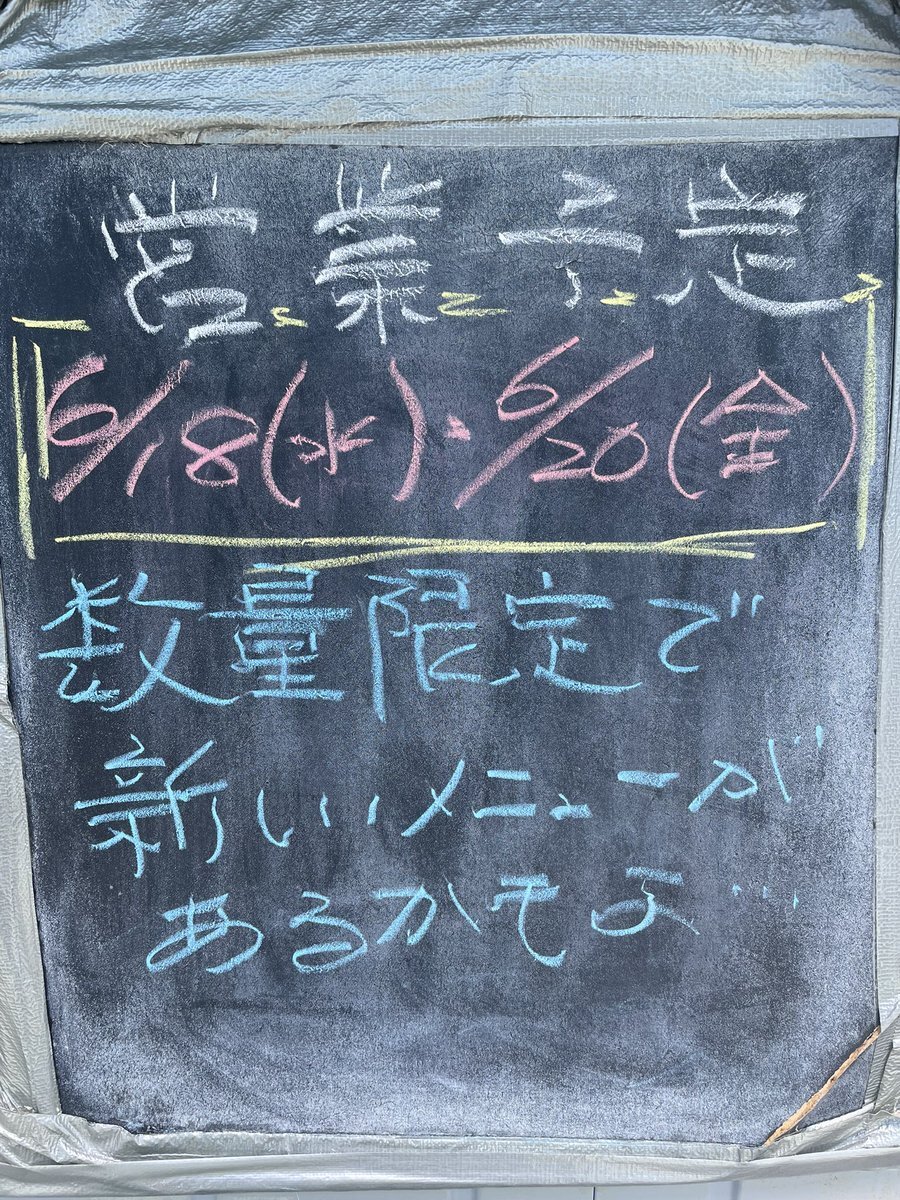 営業予定
6/18(水)・6/20(金)
数量限定で
新しいメニューが
あるかもよ…